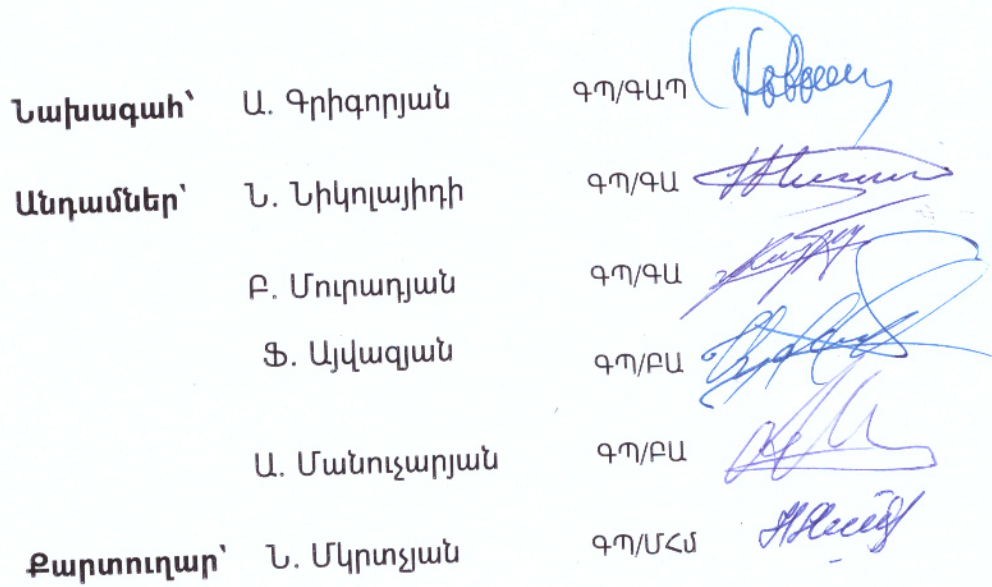 Նախագահ՝ Ա. Գրիգորյան ԳՊ/ԳԱՊ
Անդամներ՝ Ն. Նիկոլայիդի ԳՊ/ԳԱ
Բ. Մուրադյան ԳՊ/ԳԱ
Ֆ. Այվազյան ԳՊ/ԲԱ
Ա. Մանուչարյան ԳՊ/ԲԱ
Քարտուղար՝ Ն. Մկրտչյան ԳՊ/ՄՀմ